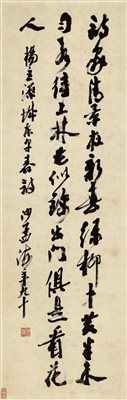 詩家清景在新春綠柳才黃半未
勻若待上林花似錦出門俱是看花
人 楊巨源城東早春詩 沙孟海年九十